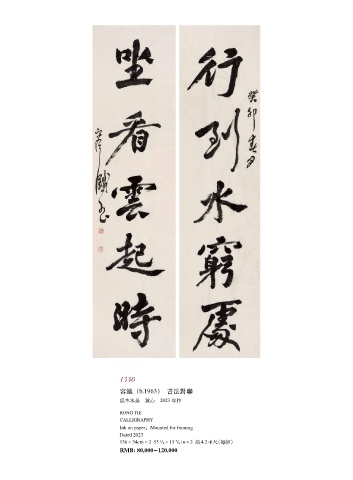 行到水窮處
癸卯春月
坐看雲起時
容鐵書
1380
容鐵（b.1963） 書法對聯
紙本水墨 鏡心 2023年作
RONG TIE
CALLIGRAPHY
Ink on paper, Mounted for framing
Dated 2023
136 × 34cm × 2 53 ½ × 13 ⅜ in × 2 約4.2平尺（每幅）
RMB: 80,000–120,000